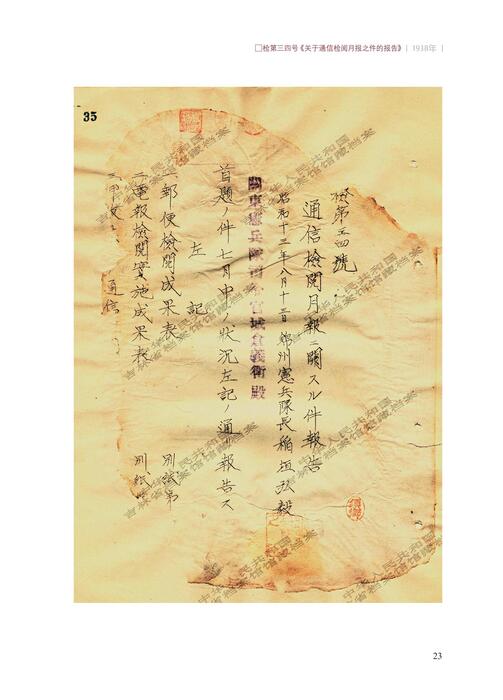 □检第三四号《关于通信检阅月报之件的报告》 | 1938年 |
35
檢第三四號
通信檢閱月報ニ關スル件報告
昭和十三年八月十三日 錦州憲兵隊長稲垣弘毅
關東憲兵隊司令官城倉義衛殿
首題ノ件七月中ノ狀況左記ノ通リ報告ス
左記
一、郵便檢閱成果表 別紙第
二、電報檢閱實施成果表 別紙
三、 通信
中华人民共和国
吉林省档案馆馆藏档案
23